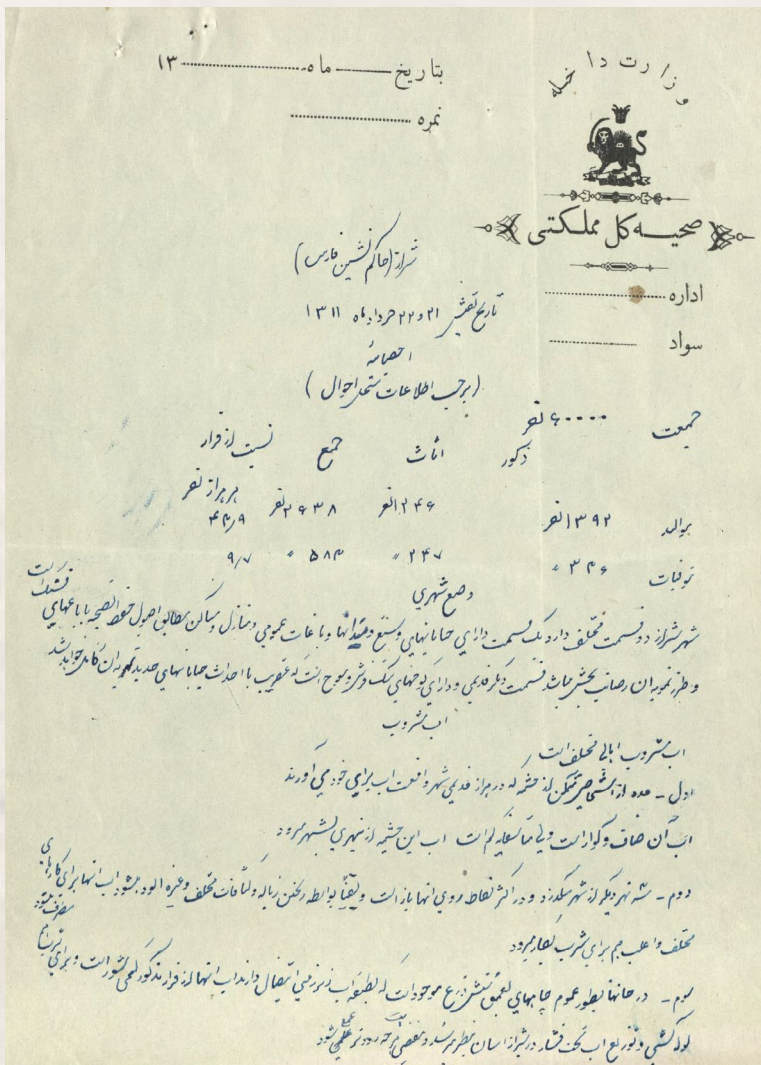 وزارت داخله
صحیه کل مملکتی
بتاریخ ماه ۱۳
نمره
اداره
سواد
شیراز (حاکم نشین فارس)
تاریخ تفتیش ۲۱ و ۲۲ خردادماه ۱۳۱۱
احصائیه
(برحسب اطلاعات سجل احوال)
جمعیت ۶۰۰۰۰ نفر
ذکور اناث جمع نسبت از قرار هر هزار نفر
موالید ۱۳۹۲ نفر ۱۲۴۶ نفر ۲۶۳۸ نفر ۴۳/۹
توفیات ۳۳۶ " ۲۴۷ " ۵۸۳ " ۹/۷
وضع شهری
شهر شیراز دو قسمت مختلف دارد یک قسمت دارای خیابانهای وسیع و میدانها و باغات عمومی و منازل و مساکن مطابق اصول حفظ الصحه با باغهای قشنگ است
و طرز تهویه ان رضایت بخش میباشد قسمت دیگر قدیمی و دارای کوچهای تنگ و معوج است که عنقریب با احداث خیابانهای جدید تهویه ان کامل خواهد شد
اب مشروب
اب مشروب اهالی مختلف است
اول - عده از اشخاص متمکن از چشمه که در قدیمی شهر واقعست اب برای خود می آورند
اب آن صاف و گوارا است ولی کم است اب این چشمه از نهری بشهر میرود
دوم - سه نهر دیگر از شهر میگذرد و در اکثر نقاط روی انها باز است و یقیناً بواسطه ریختن زباله و کثافات مختلف و غیره الوده میشود اب انها برای کارهای
مختلف مصرف میشود و اغلب هم برای شرب بکار میرود
سوم - در خانها بطور عموم چاههای بعمق شش ذرع موجود است که بطبقه اب زیر زمینی اتصال دارند اب انها از قرار مذکور کمی شور است و برای شرب
لوله کشی و توزیع اب تحت فشار در شیراز اسان بنظر میرسد و هرچه زودتر عملی شود